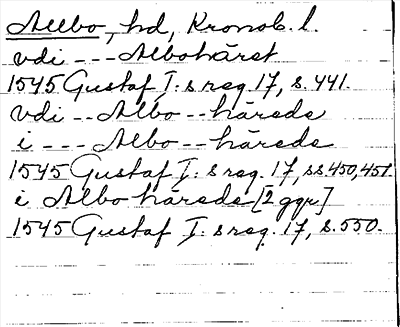 Allbo, hd, Kronob. l.
vdi --- Albohärst
1545 Gustaf I:s reg. 17, s. 441.
vdi -- Albo -- härede
i --- Albo -- härede
1545 Gustaf I:s reg. 17, ss. 450, 451.
i Albo härede [2 ggr]
1545 Gustaf I:s reg. 17, s. 550.